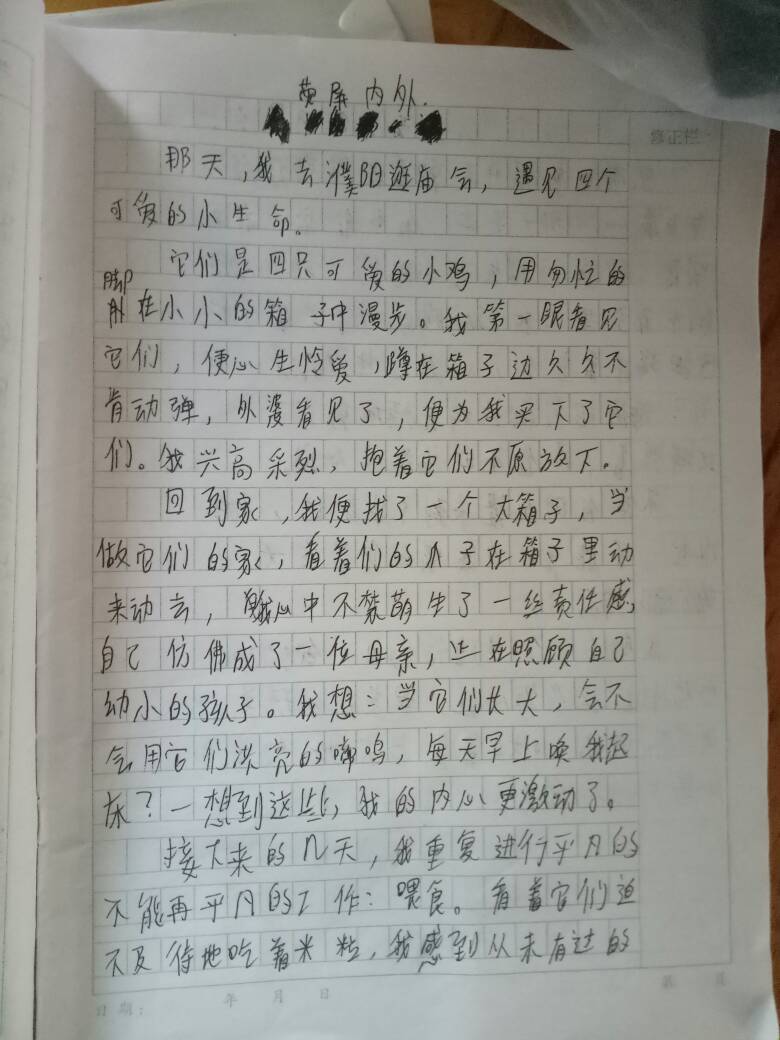 荧屏内外.
修正栏
那天,我去濮阳逛庙会,遇见四个
可爱的小生命。
它们是四只可爱的小鸡,用匆忙的
脚
在小小的箱子中漫步。我第一眼看见
它们,便心生怜爱,蹲在箱子边久久不
肯动弹,外婆看见了,便为我买下了它
们。我兴高采烈,抱着它们不原放下。
回到家,我便找了一个大箱子,当
做它们的家,看着们的爪子在箱子里动
来动去,我心中不禁萌生了一丝责任感,
自己仿佛成了一位母亲,正在照顾自己
幼小的孩子。我想:当它们长大,会不
会用它们洪亮的啼鸣,每天早上唤我起
床?一想到这些,我的内心更激动了。
接下来的几天,我重复进行平凡的
不能再平凡的工作:喂食。看着它们迫
不及待地吃着米粒,我感到从未有过的
日期: 年 月 日
第 页